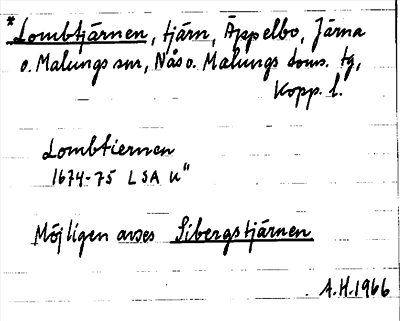 *Lombtjärnen, tjärn, Äppelbo, Järna
o. Malungs snr, Nås o. Malungs doms. tg,
Kopp. l.
Lombtiernen
1674-75 LSA U"
Möjligen avses Sibergstjärnen
A.H. 1966